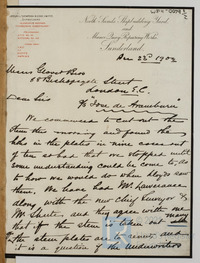 North Sands Shipbuilding Yard
and
Manor Quay Repairing Works
Sunderland,
Dec 22nd 1902
Messrs Bros
88 Bishopsgate Street
London E.C.
Dear Sirs
S/S Jose de Aramburu
We commenced to cut out the
stem this morning and found the
holes in the plates in nine cases out
of ten so bad that we stopped until
some understanding could be come to, as
to how we would do when Lloyds saw
them. We have had Mr
along with the new Chief Surveyor &
Mr and they agree with me
that if the stem is taken out many
of the stem plates renewed and
it is a question if the Underwriters